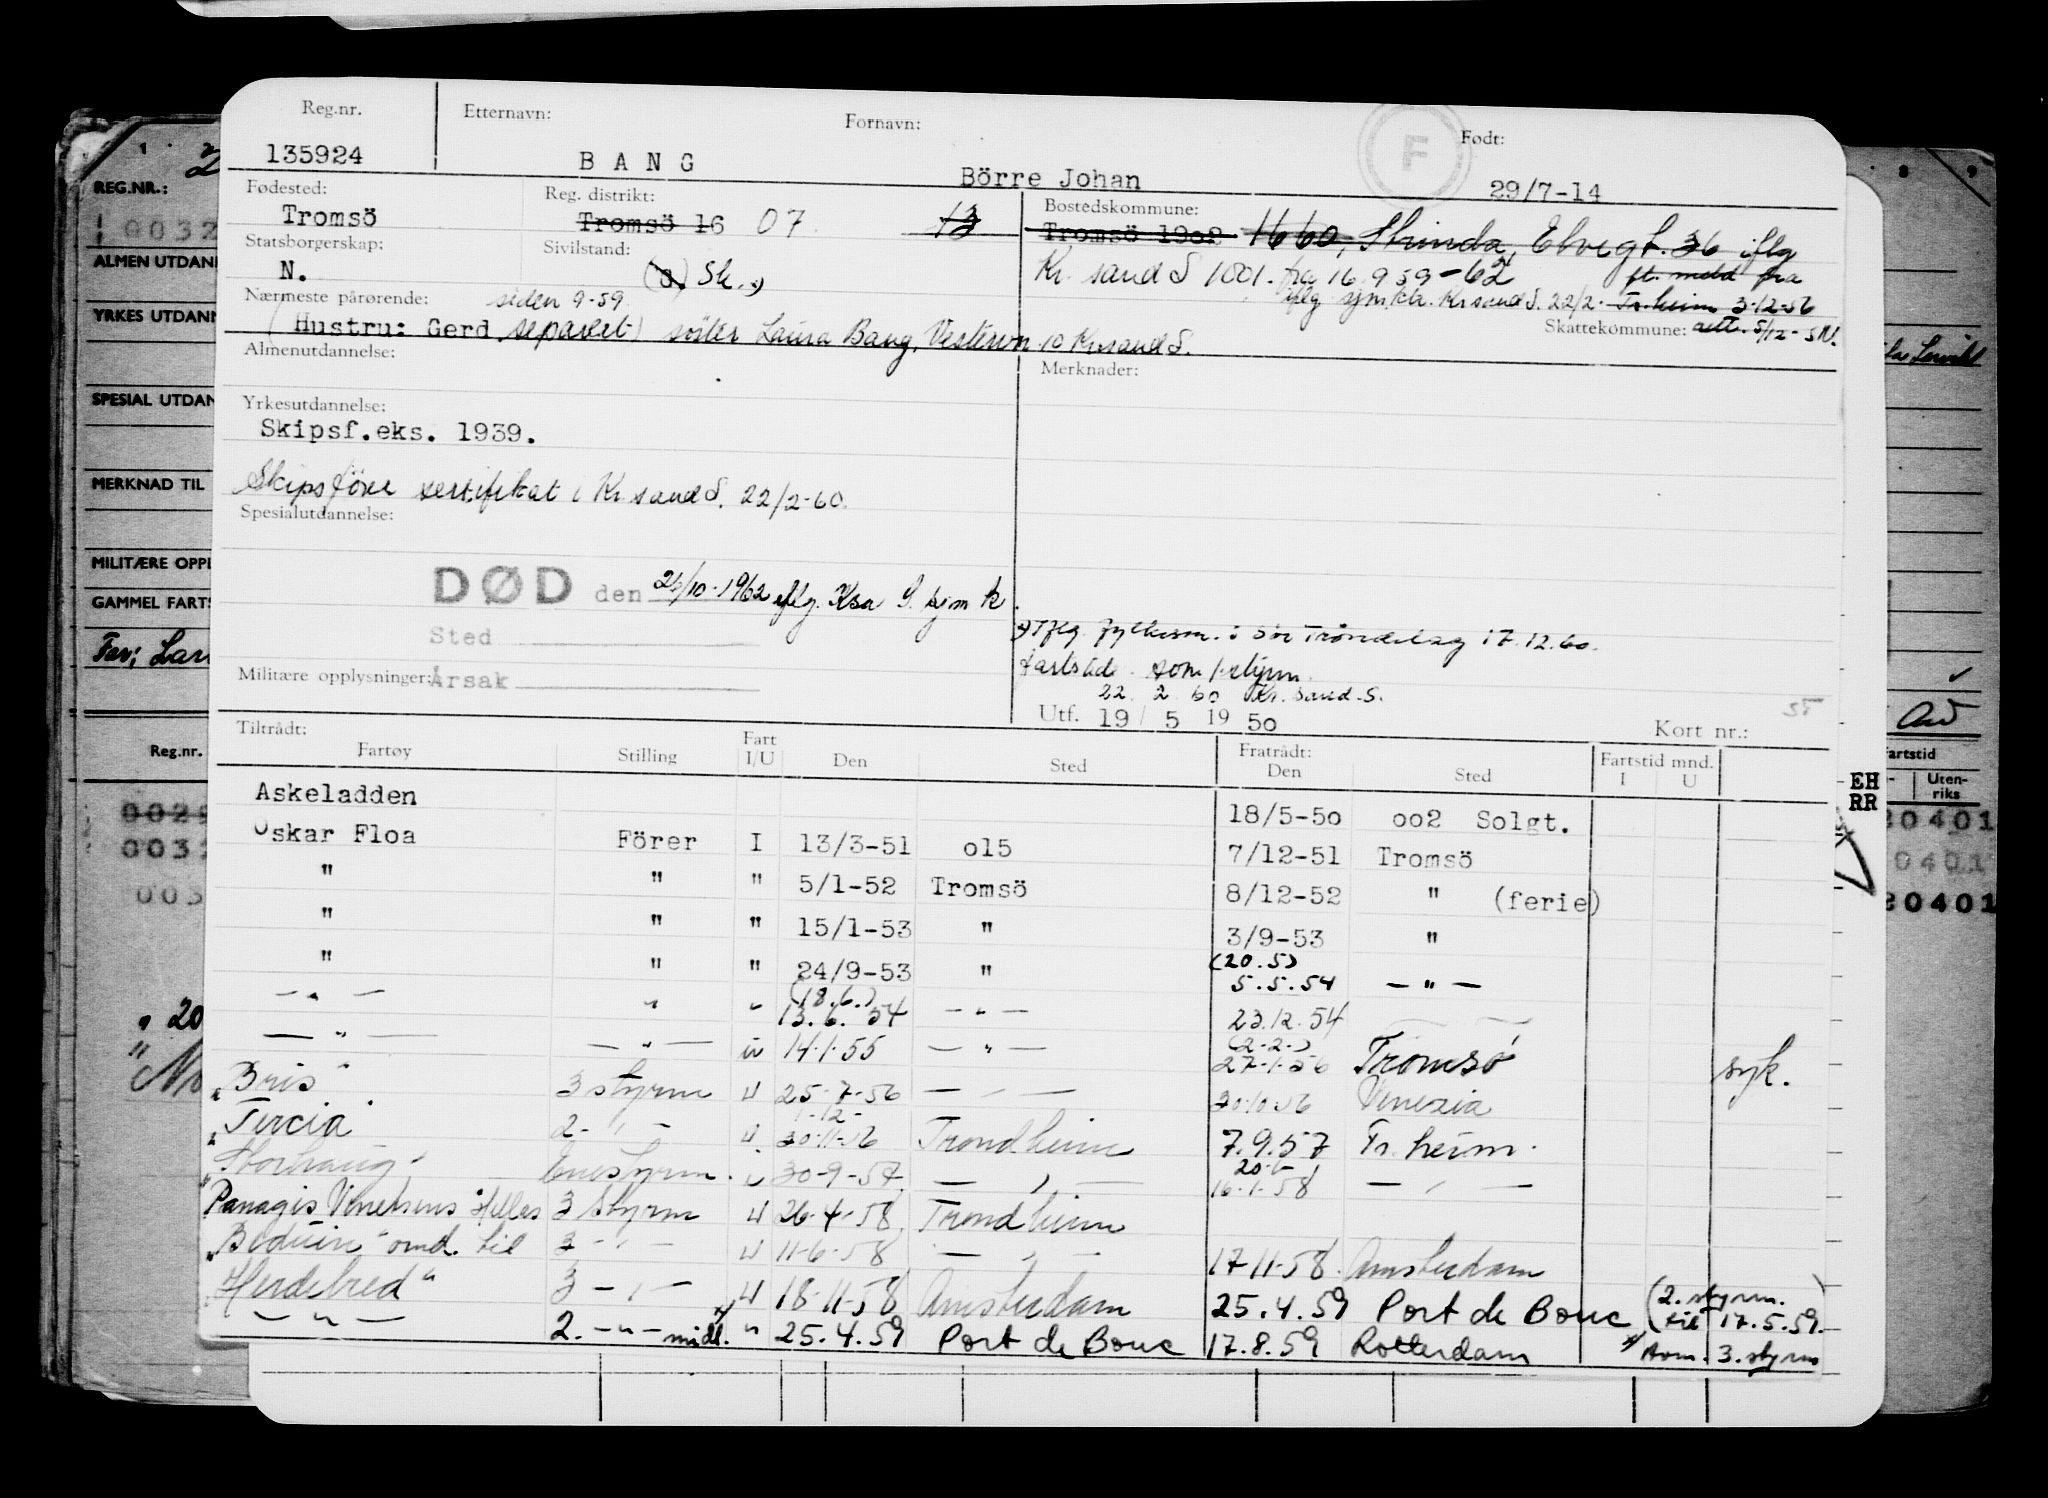 Reg.nr. Etternavn: Fornavn: F Født:
135924 BANG Börre Johan 29/7-14
Fødested: Reg. distrikt: Bostedskommune:
Tromsö Tromsö 16 07 13 Tromsö 1902 1660, Strinda, Elvegt. 36 iflg
Statsborgerskap: Sivilstand:
N. (g) Sk. Kr.sand S 1001. fra 16.9.59-62 fl. meld fra
Nærmeste pårørende: siden 9-59 iflg sjm.ktr. Kr.sand S. 22/2. Tr.heim 3-12-56
(Hustru: Gerd separert) söster Laura Bang, 10 Kr.sand S. Skattekommune: 5/12-
Almenutdannelse: Merknader:
Yrkesutdannelse:
Skipsf.eks. 1939.
Skipsförer sertifikat i Kr.sand S. 22/2-60.
Spesialutdannelse:
DØD den 26/10-1962 iflg. Ksa S. sjm k.
Sted
Iflg. fylkesm. i Sör Tröndelag 17.12.60.
Militære opplysninger: Årsak
fartstid som
22 2 60 Kr.sand.S.
Utf. 19/5 1950 Kort nr.:
55
Tiltrådt: Fratrådt:
Fartøy Stilling Fart I/U Den Sted Den Sted Fartstid mnd. I U
Askeladden 18/5-50 002 Solgt.
Oskar Floa Förer I 13/3-51 015 7/12-51 Tromsö
" " " 5/1-52 Tromsö 8/12-52 " (ferie)
" " " 15/1-53 " 3/9-53 "
" " " 24/9-53 " (20.5) 5.5.54 — " —
— " — " " (18.6.) 13.6.54 — " — 23.12.54
— " — — " — " 14.1.55 — " — (2-2-) 27-1-56 Tromsö syk.
"Bris" 3 styrm U 25-7-56 — " — 30.10.56 Venezia
"Tercia" 2- " - U 1-12- 30-11-56 Trondheim 7.9.57 Tr.heim.
"Storhaug" Enestyrm. 30-9-57 — " — 16-1-58 — " —
"Panagis Hellas 3 Styrm U 26-4-58 Trondheim
"Beduin" omd. til 3 - " - U 11-6-58 — " — 17-11-58 Amsterdam
"Herdebred" 3 - " - U 18-11-58 Amsterdam 25.4.59 Port de Bouc (2. styrm. til 17.5.59.)
— " — 2. - " - midl. x) " 25.4.59 Port de Bouc 17.8.59 Rotterdam x) 3. styrm
REG.NR.:
0032
ALMEN UTDAN
YRKES UTDANN
SPESIAL UTDAN
MERKNAD TIL
MILITÆRE OPPL
GAMMEL FARTS
Far; Lar
Reg.nr.
003
" 20
artstid
Uten-
riks
EH
RR
20401
0401
20401